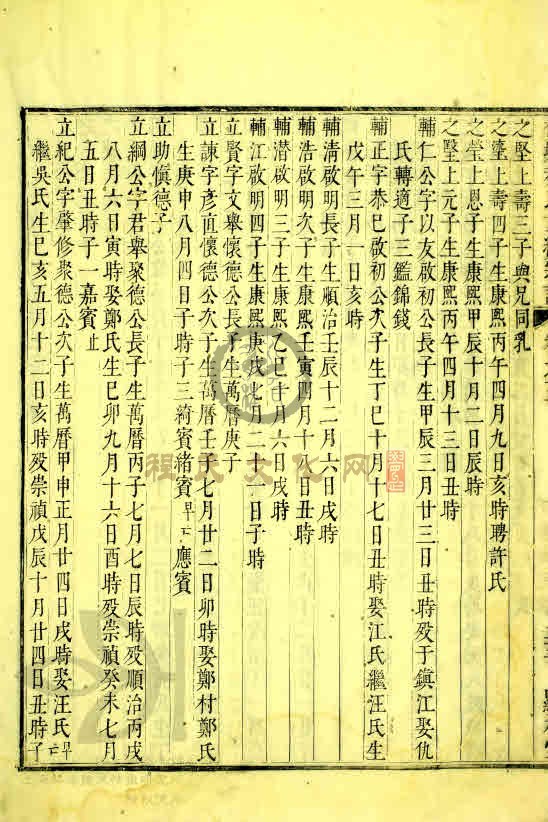 之堅上壽三子與兄同乳
之壐上壽四子生康熙丙午四月九日亥時聘許氏
之瑩上恩子生康熙甲辰十月二日辰時
之壂上元子生康熙丙午四月十三日丑時
輔仁公字以友啟初公長子生甲辰三月廿三日丑時歿于鎮江娶仇
氏轉適子三鑑錦錢
輔正字恭已啟初公次子生丁巳十月十七日丑時娶江氏繼汪氏生
戊午三月一日亥時
輔清啟明長子生順治壬辰十二月六日戌時
輔浩啟明次子生康熙壬寅四月十八日丑時
輔潛啟明三子生康熙乙巳十月六日戌時
輔江啟明四子生康熙庚戌七月二十一日子時
立賢字文舉懷德公長子生萬曆庚子
立諫字彥直懷德公次子生萬曆壬子七月廿二日卯時娶鄭村鄭氏
生庚申八月四日子時子三綺賓緒賓早亡應賓
立助慎德子
立綱公字君舉聚德公長子生萬曆丙子七月七日辰時歿順治丙戌
八月六日寅時娶鄭氏生己卯九月十六日酉時歿崇禎癸未七月
五日丑時子一嘉賓止
立紀公字肇修聚德公次子生萬曆甲申正月廿四日戌時娶汪氏早亡
繼吳氏生己亥五月十二日亥時歿崇禎戊辰十月廿四日丑時子
程氏文化网